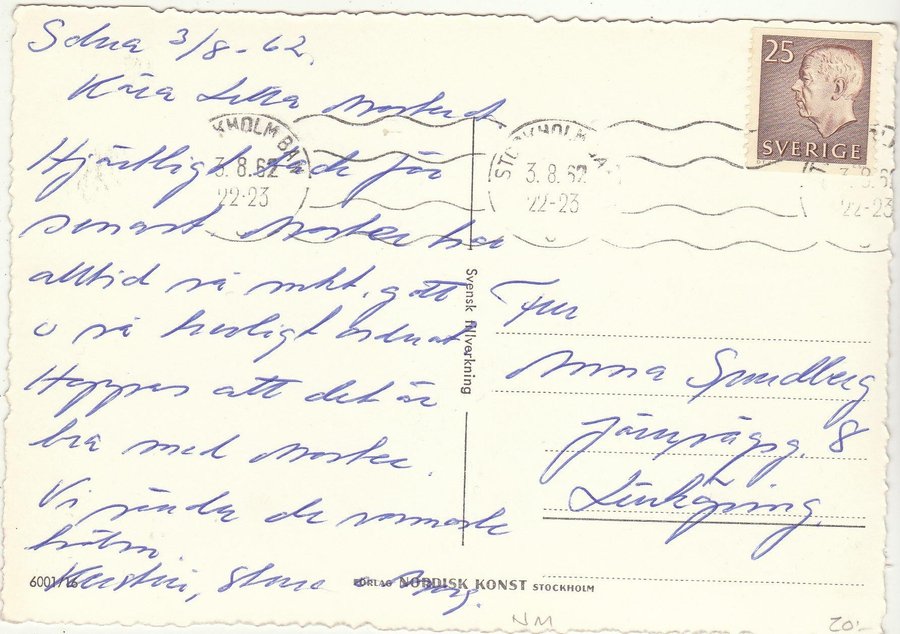 Solna 3/8-62.
Kära Lilla Moster!
Hjärtligt tack för
senast Moster har
alltid så mkt. gott
o så trevligt ordnat
Hoppas att det är
bra med Moster.
Vi sänder de varmaste
hälsn.
Kerstin,
6001/16
FÖRLAG NORDISK KONST STOCKHOLM
Svensk tillverkning
25
SVERIGE
KHOLM BAN
3.8.62
22-23
STOCKHOLM BA
3.8.62
22-23
3.8.62
22-23
Fru
Anna Sundberg
Järnvägsg. 8
Linköping.
NM
20:-